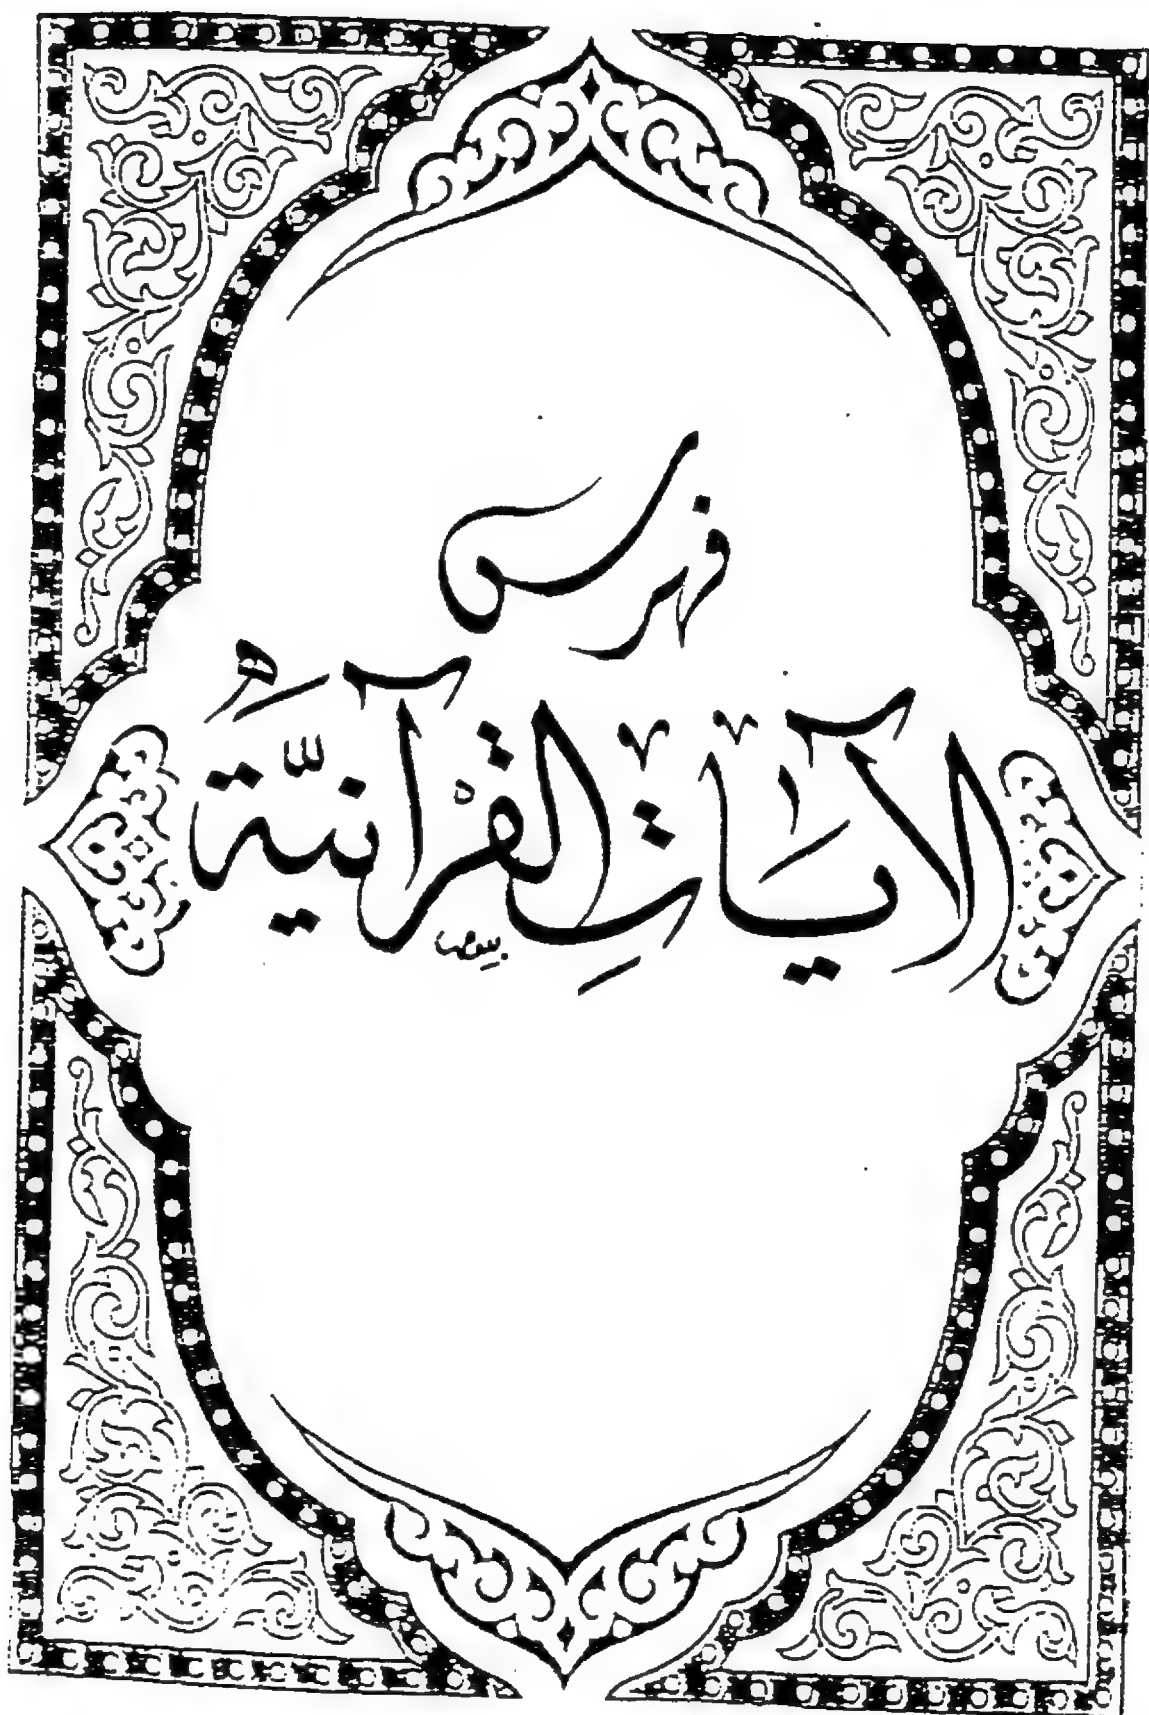 فهرس
الآياتِ القرآنيّة